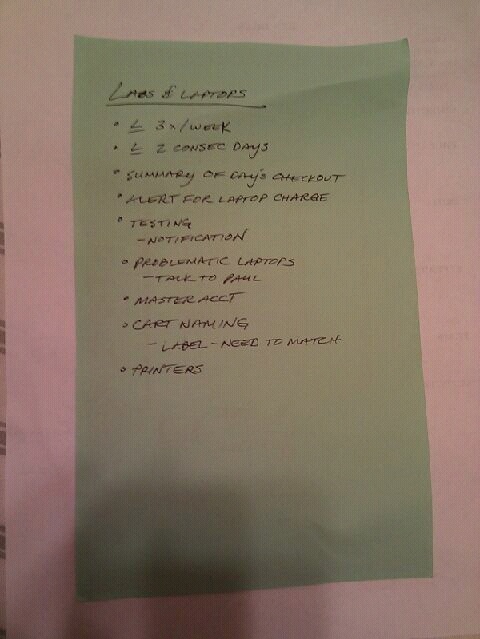 LABS & LAPTOPS
• ≤ 3x/WEEK
• ≤ 2 CONSEC DAYS
• SUMMARY OF DAY'S CHECKOUT
• ALERT FOR LAPTOP CHARGE
• TESTING
- NOTIFICATION
• PROBLEMATIC LAPTOPS
- TALK TO PAUL
• MASTER ACCT
• CART NAMING
- LABEL - NEED TO MATCH
• PRINTERS